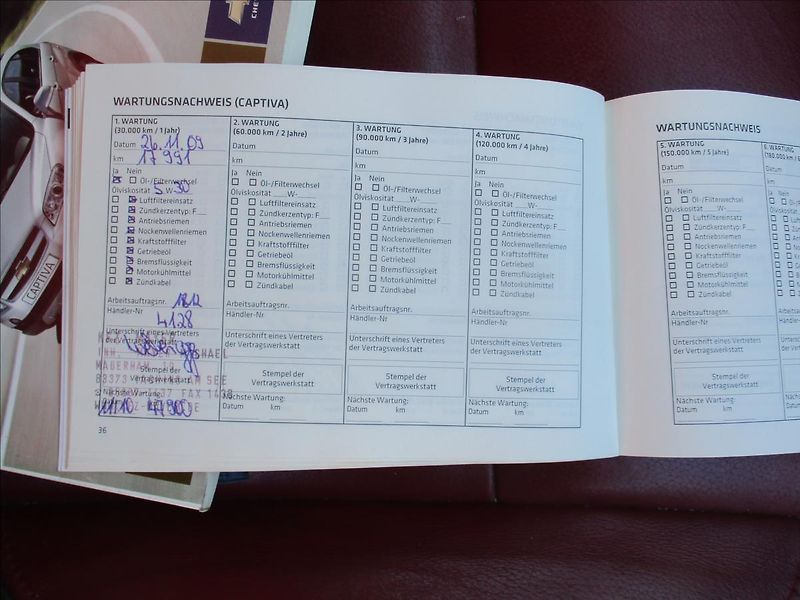 CHE
CAPTIVA
WARTUNGSNACHWEIS (CAPTIVA)
1. WARTUNG
(30.000 km / 1 Jahr)
Datum 26.11.09
km 17991
Ja Nein
Öl-/Filterwechsel
Ölviskosität 5 W 30
Luftfiltereinsatz
Zündkerzentyp: F
Antriebsriemen
Nockenwellenriemen
Kraftstofffilter
Getriebeöl
Bremsflüssigkeit
Motorkühlmittel
Zündkabel
Arbeitsauftragsnr.
Händler-Nr 4128
Unterschrift eines Vertreters
der Vertragswerkstatt
INH.
Stempel der
Vertragswerkstatt
83373 AM SEE
FAX 1438
Nächste Wartung:
11/10 47900
36
2. WARTUNG
(60.000 km / 2 Jahre)
Datum
km
Ja Nein
Öl-/Filterwechsel
Ölviskosität W-
Luftfiltereinsatz
Zündkerzentyp: F
Antriebsriemen
Nockenwellenriemen
Kraftstofffilter
Getriebeöl
Bremsflüssigkeit
Motorkühlmittel
Zündkabel
Arbeitsauftragsnr.
Händler-Nr
Unterschrift eines Vertreters
der Vertragswerkstatt
Stempel der
Vertragswerkstatt
Nächste Wartung:
Datum km
3. WARTUNG
(90.000 km / 3 Jahre)
Datum
km
Ja Nein
Öl-/Filterwechsel
Ölviskosität W-
Luftfiltereinsatz
Zündkerzentyp: F
Antriebsriemen
Nockenwellenriemen
Kraftstofffilter
Getriebeöl
Bremsflüssigkeit
Motorkühlmittel
Zündkabel
Arbeitsauftragsnr.
Händler-Nr
Unterschrift eines Vertreters
der Vertragswerkstatt
Stempel der
Vertragswerkstatt
Nächste Wartung:
Datum km
4. WARTUNG
(120.000 km / 4 Jahre)
Datum
km
Ja Nein
Öl-/Filterwechsel
Ölviskosität W-
Luftfiltereinsatz
Zündkerzentyp: F
Antriebsriemen
Nockenwellenriemen
Kraftstofffilter
Getriebeöl
Bremsflüssigkeit
Motorkühlmittel
Zündkabel
Arbeitsauftragsnr.
Händler-Nr
Unterschrift eines Vertreters
der Vertragswerkstatt
Stempel der
Vertragswerkstatt
Nächste Wartung:
Datum km
WARTUNGSNACHWEIS
5. WARTUNG
(150.000 km / 5 Jahre)
Datum
km
Ja Nein
Öl-/Filterwechsel
Ölviskosität W-
Luftfiltereinsatz
Zündkerzentyp: F
Antriebsriemen
Nockenwellenriemen
Kraftstofffilter
Getriebeöl
Bremsflüssigkeit
Motorkühlmittel
Zündkabel
Arbeitsauftragsnr.
Händler-Nr
Unterschrift eines Vertreters
der Vertragswerkstatt
Stempel der
Vertragswerkstatt
Nächste Wartung:
Datum km
6. WARTUNG
(180.000 km
Datum
km
Ja